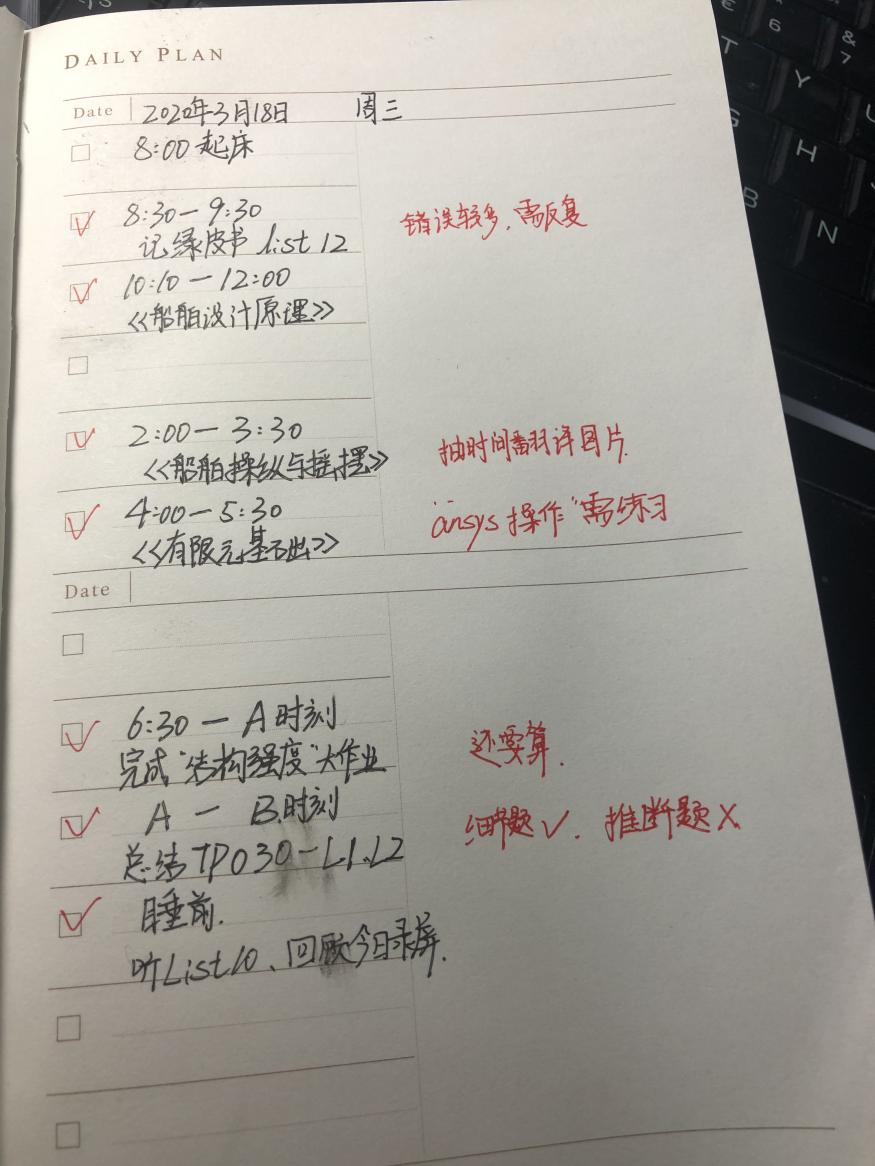 DAILY PLAN
Date 2020年3月18日 周三
8:00 起床
8:30－9:30 错误较多，需反复
记绿皮书 list 12
10:10－12:00
<<船舶设计原理>>
2:00－3:30 抽时间翻译图片.
<<船舶操纵与摇摆>>
4:00－5:30 "ansys 操作"需练习
<<有限元基础>>
Date
6:30－A时刻 还要算.
完成"结构强度"大作业
A－B时刻 细节题√. 推断题×
总结TPO30－L1.L2
睡前.
听List10、回顾今日录屏.